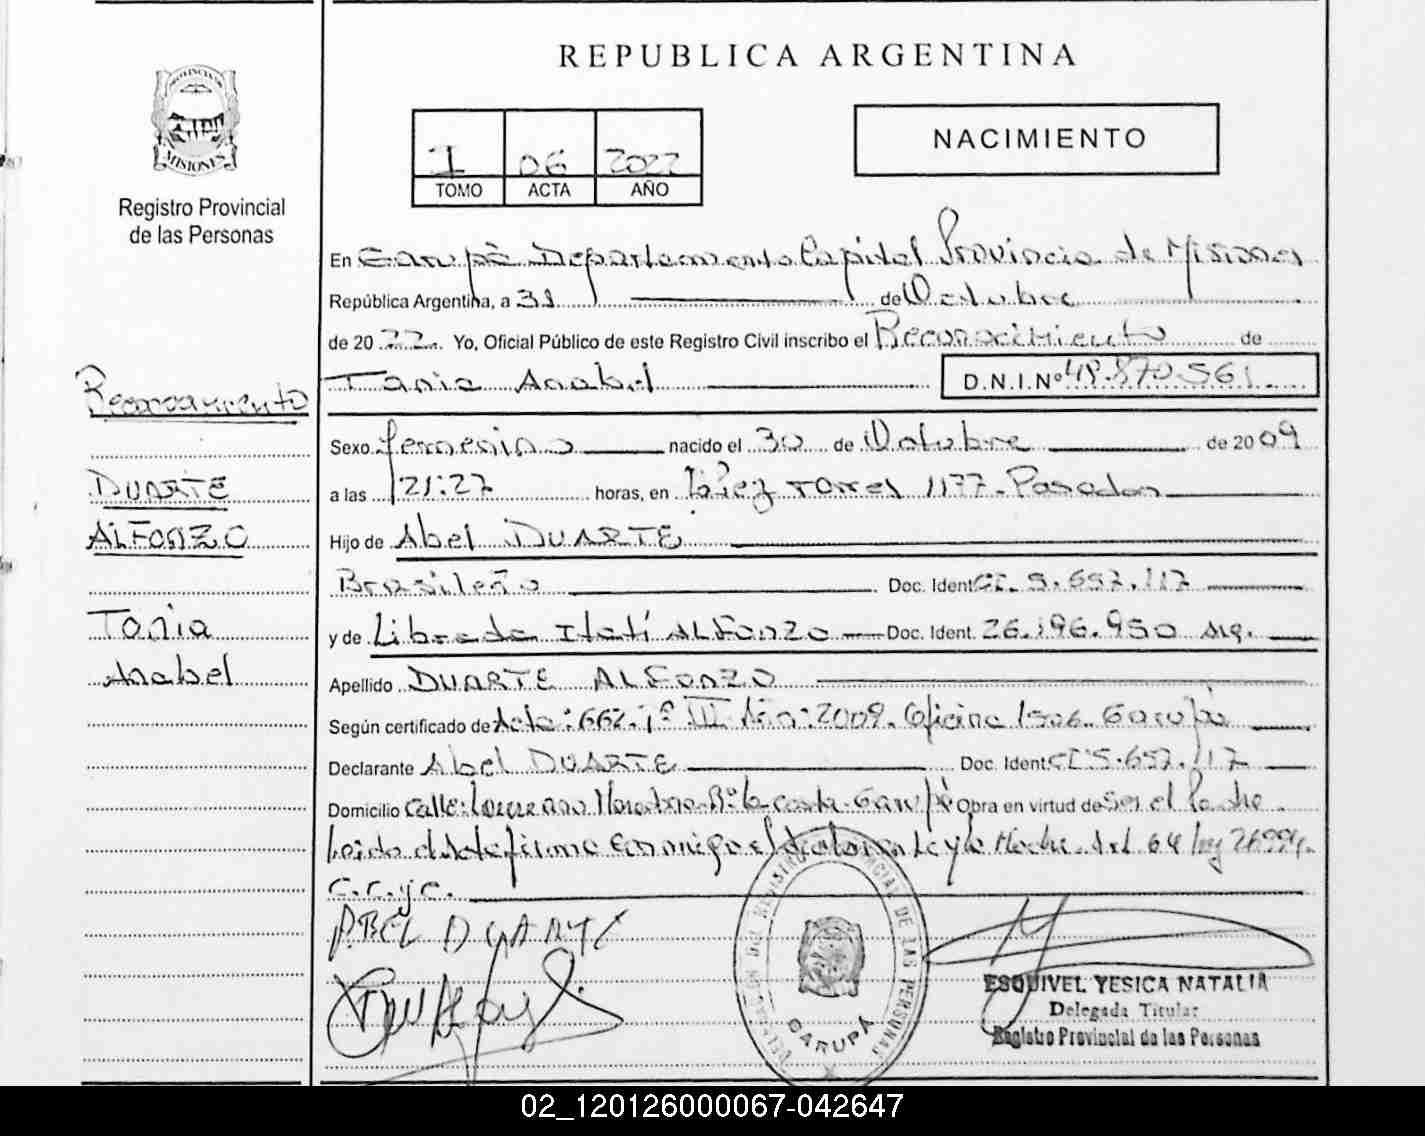 REPUBLICA ARGENTINA
NACIMIENTO
I 06 2022
TOMO ACTA AÑO
PROVINCIA DE
MISIONES
Registro Provincial
de las Personas
En Garupá Departamento Capital Provincia de Misiones
República Argentina, a 31 de Octubre
de 2022. Yo, Oficial Público de este Registro Civil inscribo el Reconocimiento de
Tania Anabel D.N.I.Nº 48.870.561
Reconocimiento
Sexo femenino nacido el 30 de Octubre de 2009
a las 21:27 horas, en López Torres 1177 - Posadas
DUARTE
ALFONZO
Hijo de Abel DUARTE
Brasileño Doc. Ident CI. 5.657.117
y de Librada Itatí ALFONZO Doc. Ident. 26.196.950 Arg.
Tania
Anabel
Apellido DUARTE ALFONZO
Según certificado de Acta: 662. Tº III Año: 2009. Oficina 1506. Garupá
Declarante Abel DUARTE Doc. Ident CI 5.657.117
Domicilio Calle: Bº la costa - Garupá Obra en virtud de Ser el Padre
Leído el acta firma conmigo el declarante y la Madre. Art 64 ley 26994.
C.C.yC.
ABEL DUARTE
DELEGACIÓN DEL REGISTRO PROVINCIAL DE LAS PERSONAS
GARUPÁ
ESQUIVEL YESICA NATALIA
Delegada Titular
Registro Provincial de las Personas
02_120126000067-042647